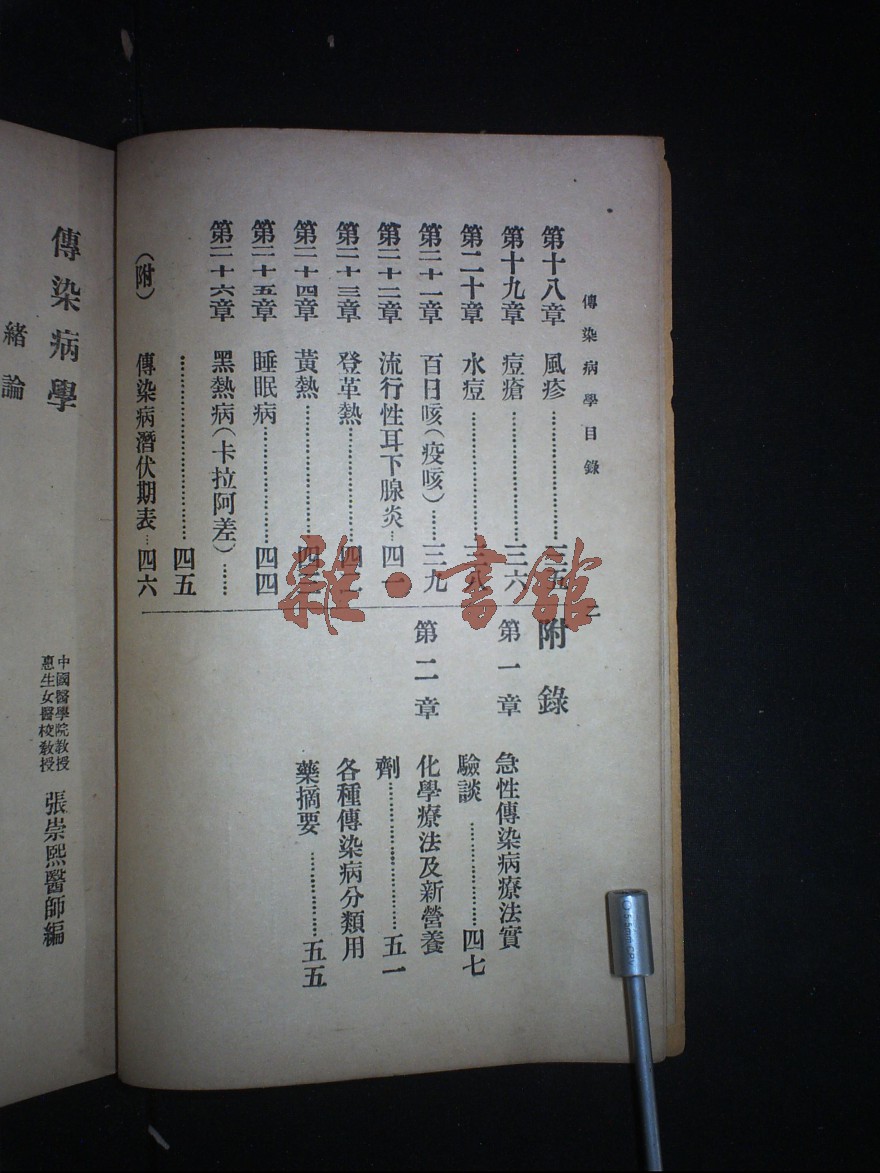 傳染病學目錄
二
第十八章 風疹……三五
第十九章 痘瘡……三六
第二十章 水痘……三八
第二十一章 百日咳(疫咳)……三九
第二十二章 流行性耳下腺炎…四一
第二十三章 登革熱……四二
第二十四章 黃熱……四三
第二十五章 睡眠病……四四
第二十六章 黑熱病(卡拉阿差)……
……四五
(附) 傳染病潛伏期表…四六
附錄
第一章 急性傳染病療法實
驗談……四七
第二章 化學療法及新營養
劑……五一
各種傳染病分類用
藥摘要……五五
傳染病學
緒論
中國醫學院教授
惠生女醫校教授
張崇熙醫師編
雜·書館